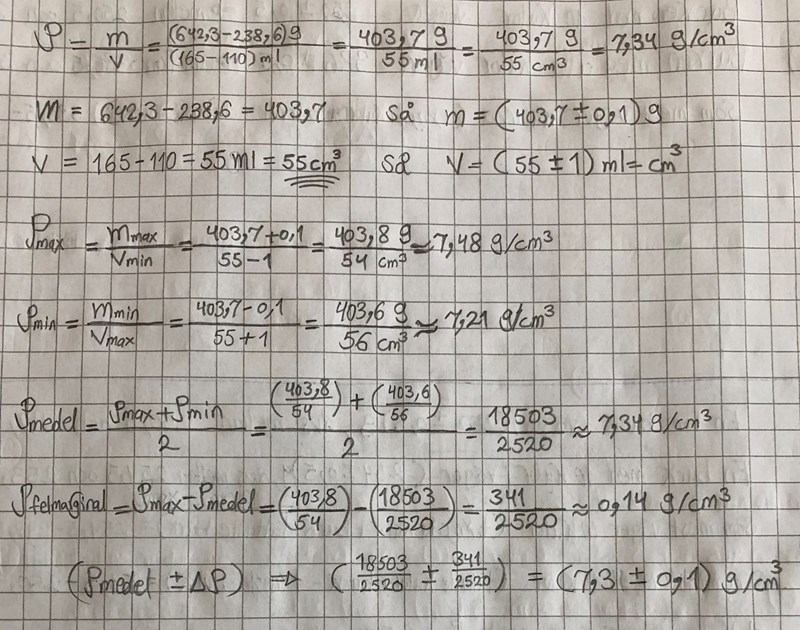 ρ = m/v = (642,3-238,6)g/(165-110)ml = 403,7 g/55 ml = 403,7 g/55 cm³ = 7,34 g/cm³
m = 642,3-238,6 = 403,7 så m = (403,7 ± 0,1) g
v = 165-110 = 55 ml = 55 cm³ så v = (55 ± 1) ml = cm³
ρmax = mmax/vmin = 403,7+0,1/55-1 = 403,8 g/54 cm³ ≈ 7,48 g/cm³
ρmin = mmin/vmax = 403,7-0,1/55+1 = 403,6 g/56 cm³ ≈ 7,21 g/cm³
ρmedel = ρmax+ρmin/2 = (403,8/54) + (403,6/56)/2 = 18503/2520 ≈ 7,34 g/cm³
ρfelmaginal = ρmax-ρmedel = (403,8/54) - (18503/2520) = 341/2520 ≈ 0,14 g/cm³
(ρmedel ± Δρ) ⇒ (18503/2520 ± 341/2520) = (7,3 ± 0,1) g/cm³